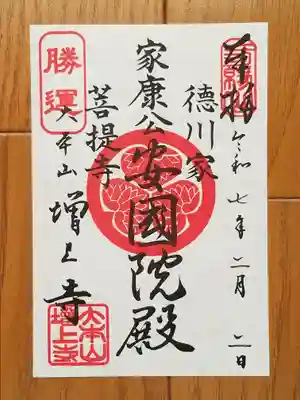 奉拝
令和七年二月二日
徳川家
家康公安國院殿
菩提寺
勝運
大本山増上寺
大本山増上寺